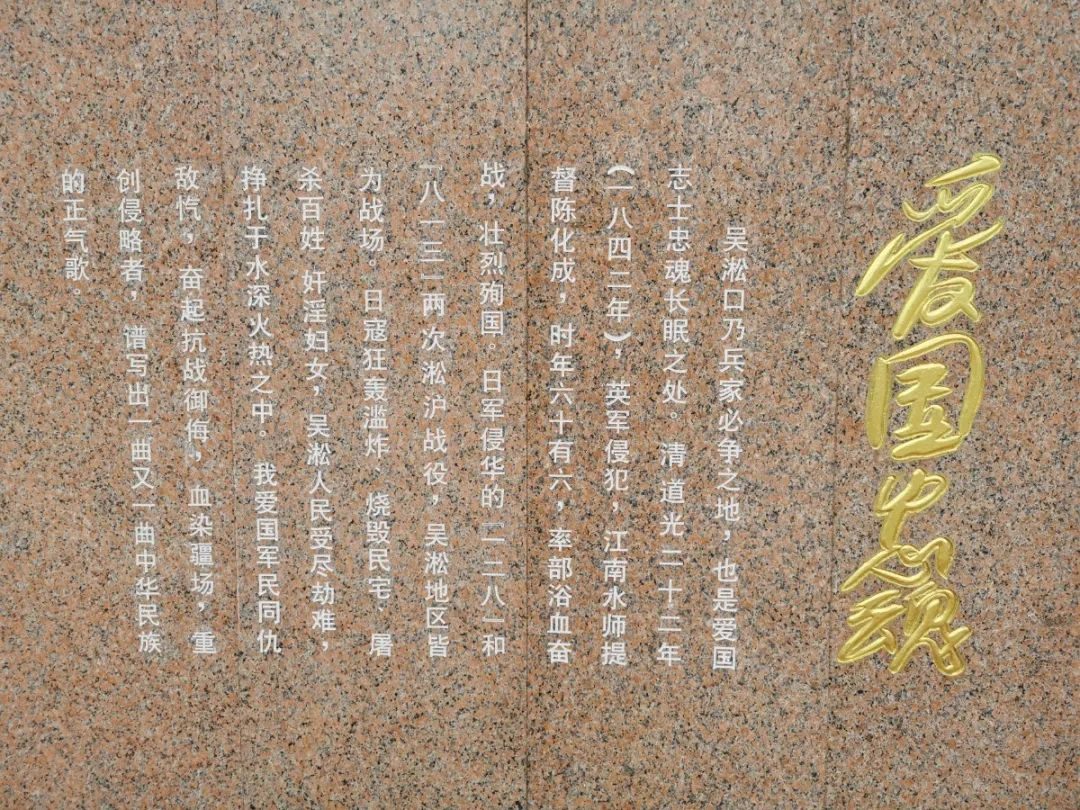 爱国忠魂
吴淞口乃兵家必争之地，也是爱国
志士忠魂长眠之处。清道光二十二年
（一八四二年），英军侵犯，江南水师提
督陈化成，时年六十有六，率部浴血奋
战，壮烈殉国。日军侵华的「一二八」和
「八一三」两次淞沪战役，吴淞地区皆
为战场。日寇狂轰滥炸、烧毁民宅、屠
杀百姓、奸淫妇女，吴淞人民受尽劫难，
挣扎于水深火热之中。我爱国军民同仇
敌忾，奋起抗战御侮，血染疆场，重
创侵略者，谱写出一曲又一曲中华民族
的正气歌。